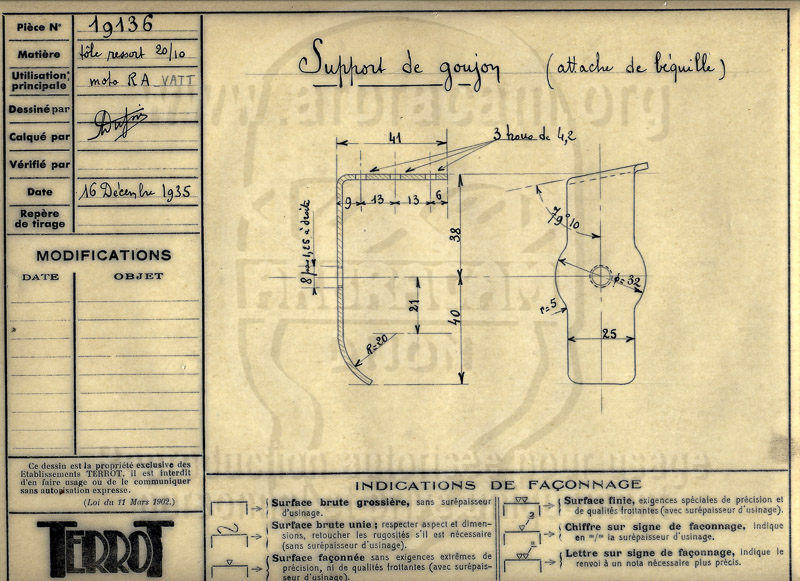 Pièce N° 19136
Matière tôle ressort 20/10
Utilisation principale moto RA VATT
Dessiné par
Calqué par
Vérifié par
Date 16 Décembre 1935
Repère de tirage
MODIFICATIONS
DATE OBJET
Ce dessin est la propriété exclusive des
Etablissements TERROT, il est interdit
d'en faire usage ou de le communiquer
sans autorisation expresse.
(Loi du 11 Mars 1902.)
TERROT
Support de goujon (attache de béquille)
41
3 trous de 4,2
9 13 13 6
8 pas 1,25 à droite
38
21
40
R=20
79°10
φ=32
r=5
25
www.arbracam.org
ARBRACAM
DIJON
INDICATIONS DE FAÇONNAGE
Surface brute grossière, sans surépaisseur
d'usinage.
Surface brute unie ; respecter aspect et dimen-
sions, retoucher les rugosités s'il est nécessaire
(sans surépaisseur d'usinage).
Surface façonnée sans exigences extrêmes de
précision, ni de qualités frottantes (avec surépais-
seur d'usinage).
Surface finie, exigences spéciales de précision et
de qualités frottantes (avec surépaisseur d'usinage).
Chiffre sur signe de faconnage, indique
en ᵐ/ᵐ la surépaisseur d'usinage.
Lettre sur signe de façonnage, indique le
renvoi à un nota nécessaire plus précis.